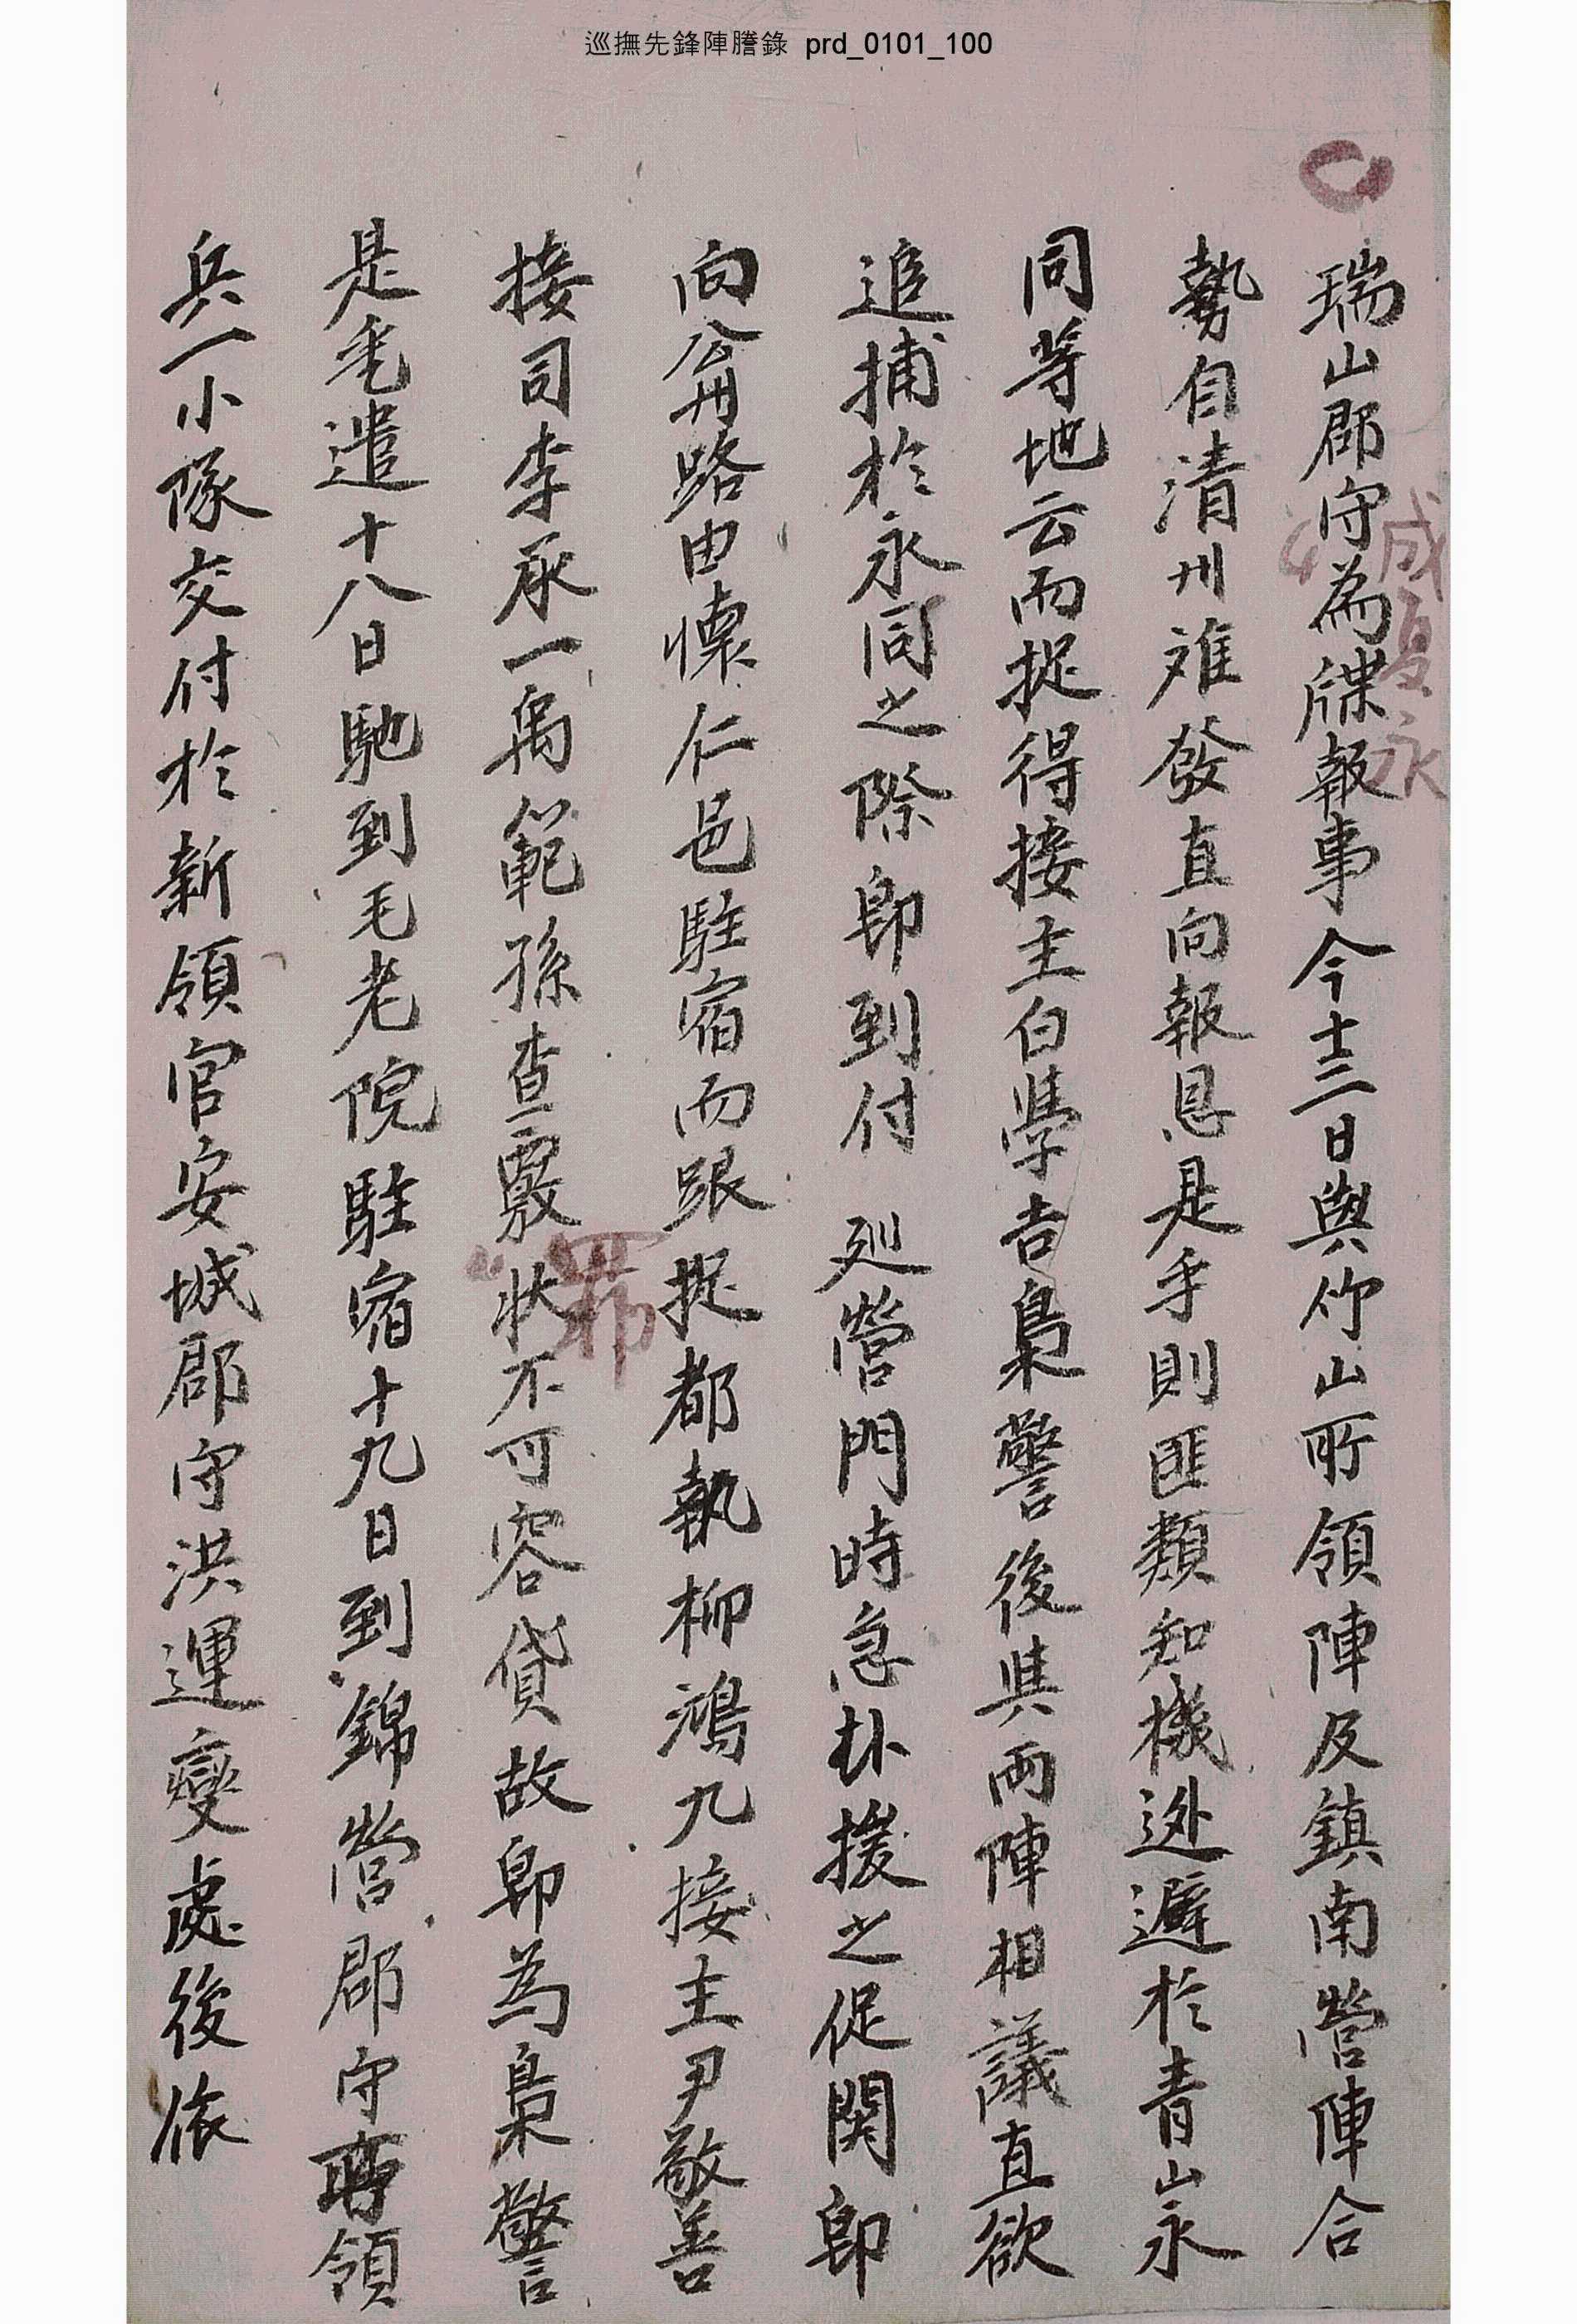 巡撫先鋒陣謄錄 prd_0101_100
瑞山郡守為牒報事今十三日與竹山所領陣及鎮南營陣合
勢自清州離發直向報恩是乎則匪類知機迯避於青山永
同等地云而捉得接主白學吉梟警後與兩陣相議直欲
追捕於永同之際卽到付 廵營門時急赴援之促関卽
向公州路由懷仁邑駐宿而跟捉都執柳鴻九接主尹敬善
接司李承一禹範孫查覈狀不可容貸故卽為梟警
罪
是乎遣十八日馳到毛老院駐宿十九日到錦營郡守所領
兵一小隊交付於新領官安城郡守洪運燮處後依